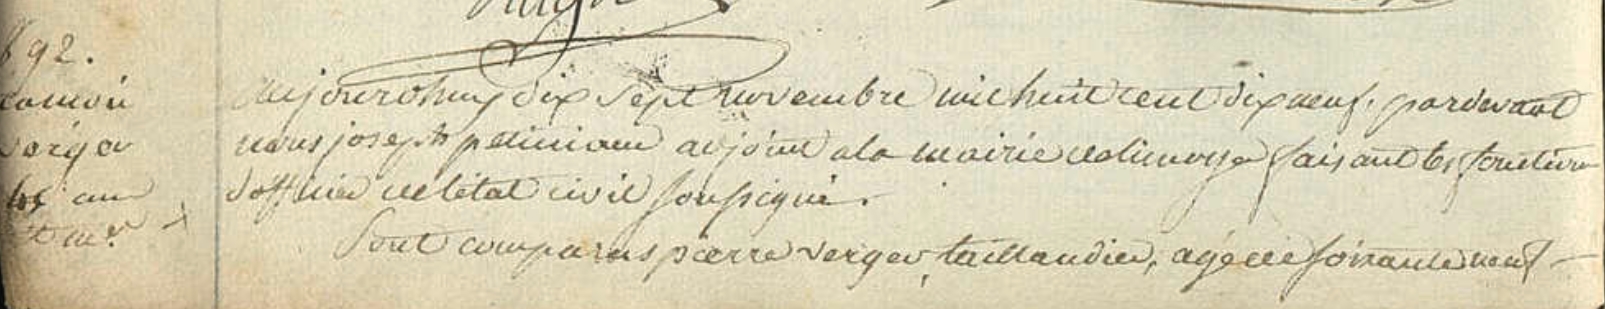 92.
verger
aujourdhuy dix sept novembre mil huit cent dix neuf. pardevant
nous joseph petiniaud adjoint ala mairie delimoges faisant les fonctions
d'officier de létat civil soussigné.
Sont comparus pierre verger, taillandier, agé de soixante neuf